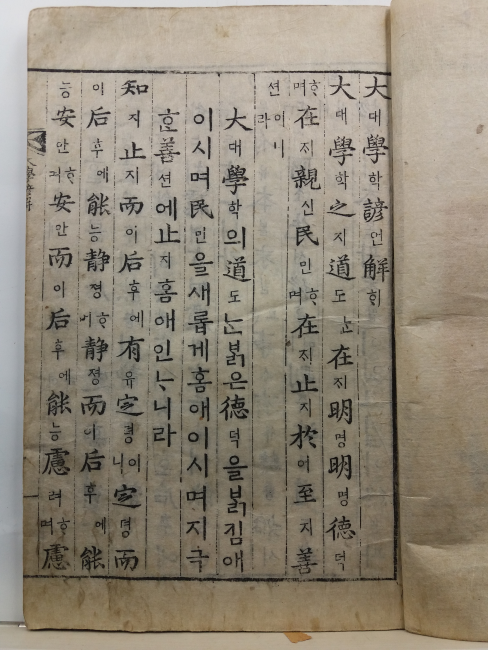 大대學학諺언解ᄒᆡ
大대學학之지道도ᄂᆞᆫ在ᄌᆡ明명明명德덕
ᄒᆞ며在ᄌᆡ親신民민ᄒᆞ며在ᄌᆡ止지於어至지善
션이니라
大대學학의道도ᄂᆞᆫ붉은德덕을붉김애
이시며民민을새롭게홈애이시며지극
ᄒᆞᆫ善션에止지홈애인ᄂᆞ니라
知지止지而이后후에有유定뎡이니定뎡而
이后후에能능靜졍ᄒᆞ며靜졍而이后후에能
능安안ᄒᆞ며安안而이后후에能능慮려ᄒᆞ며慮
大學諺解